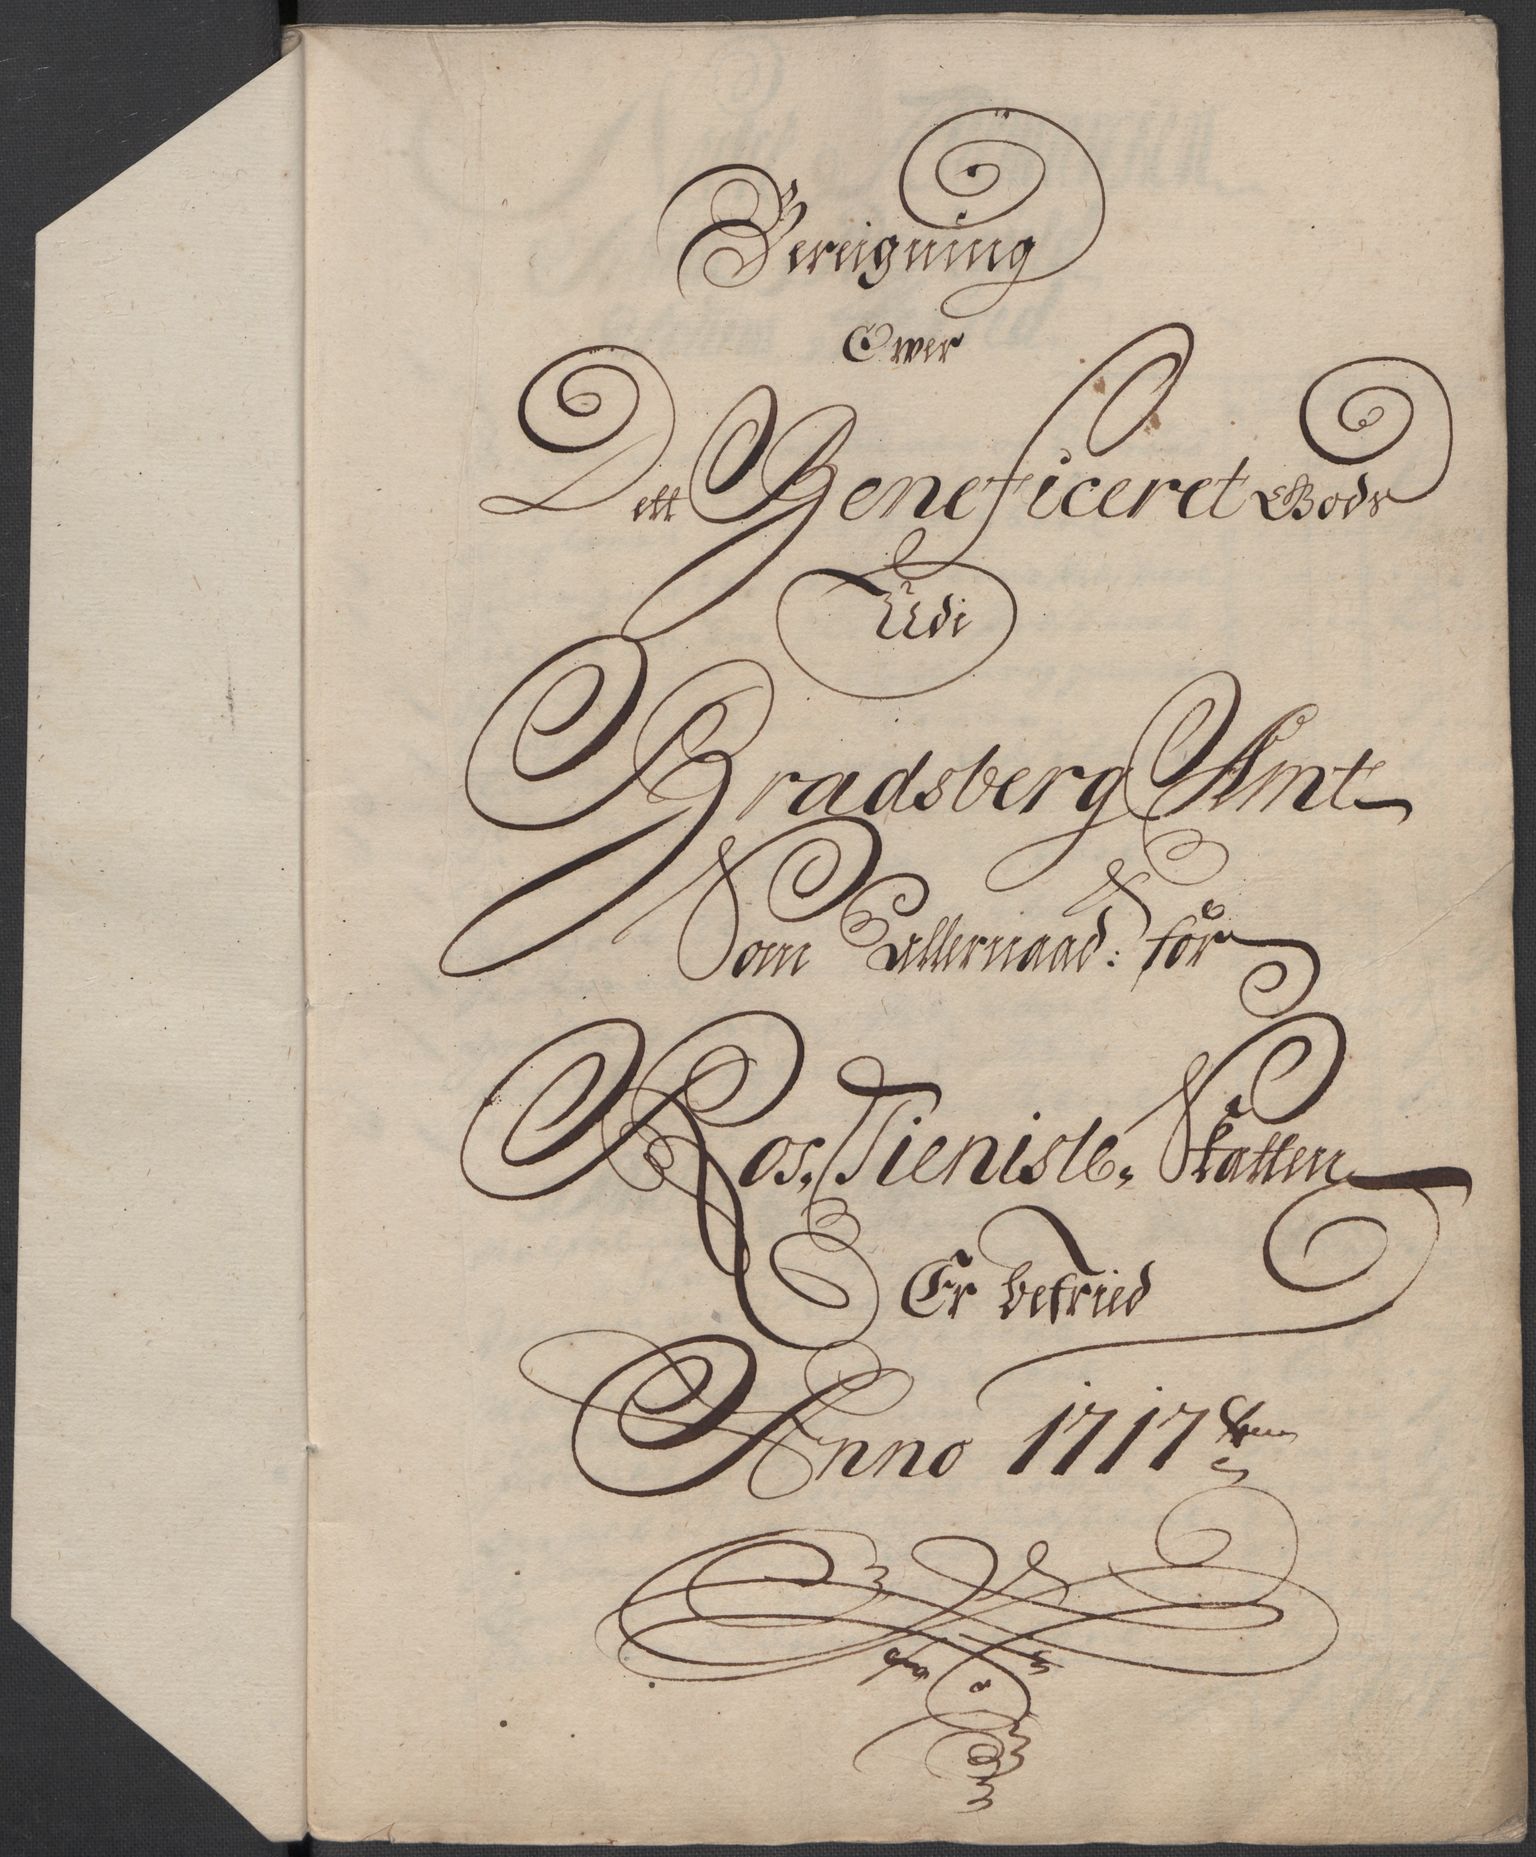 Bereigning
Ower
Dett Beneficeret Gods
Udi
Bradsberg Amt
Som allernaad: for
Ros, Tieniste, Skatten
Er befried
Anno 1717